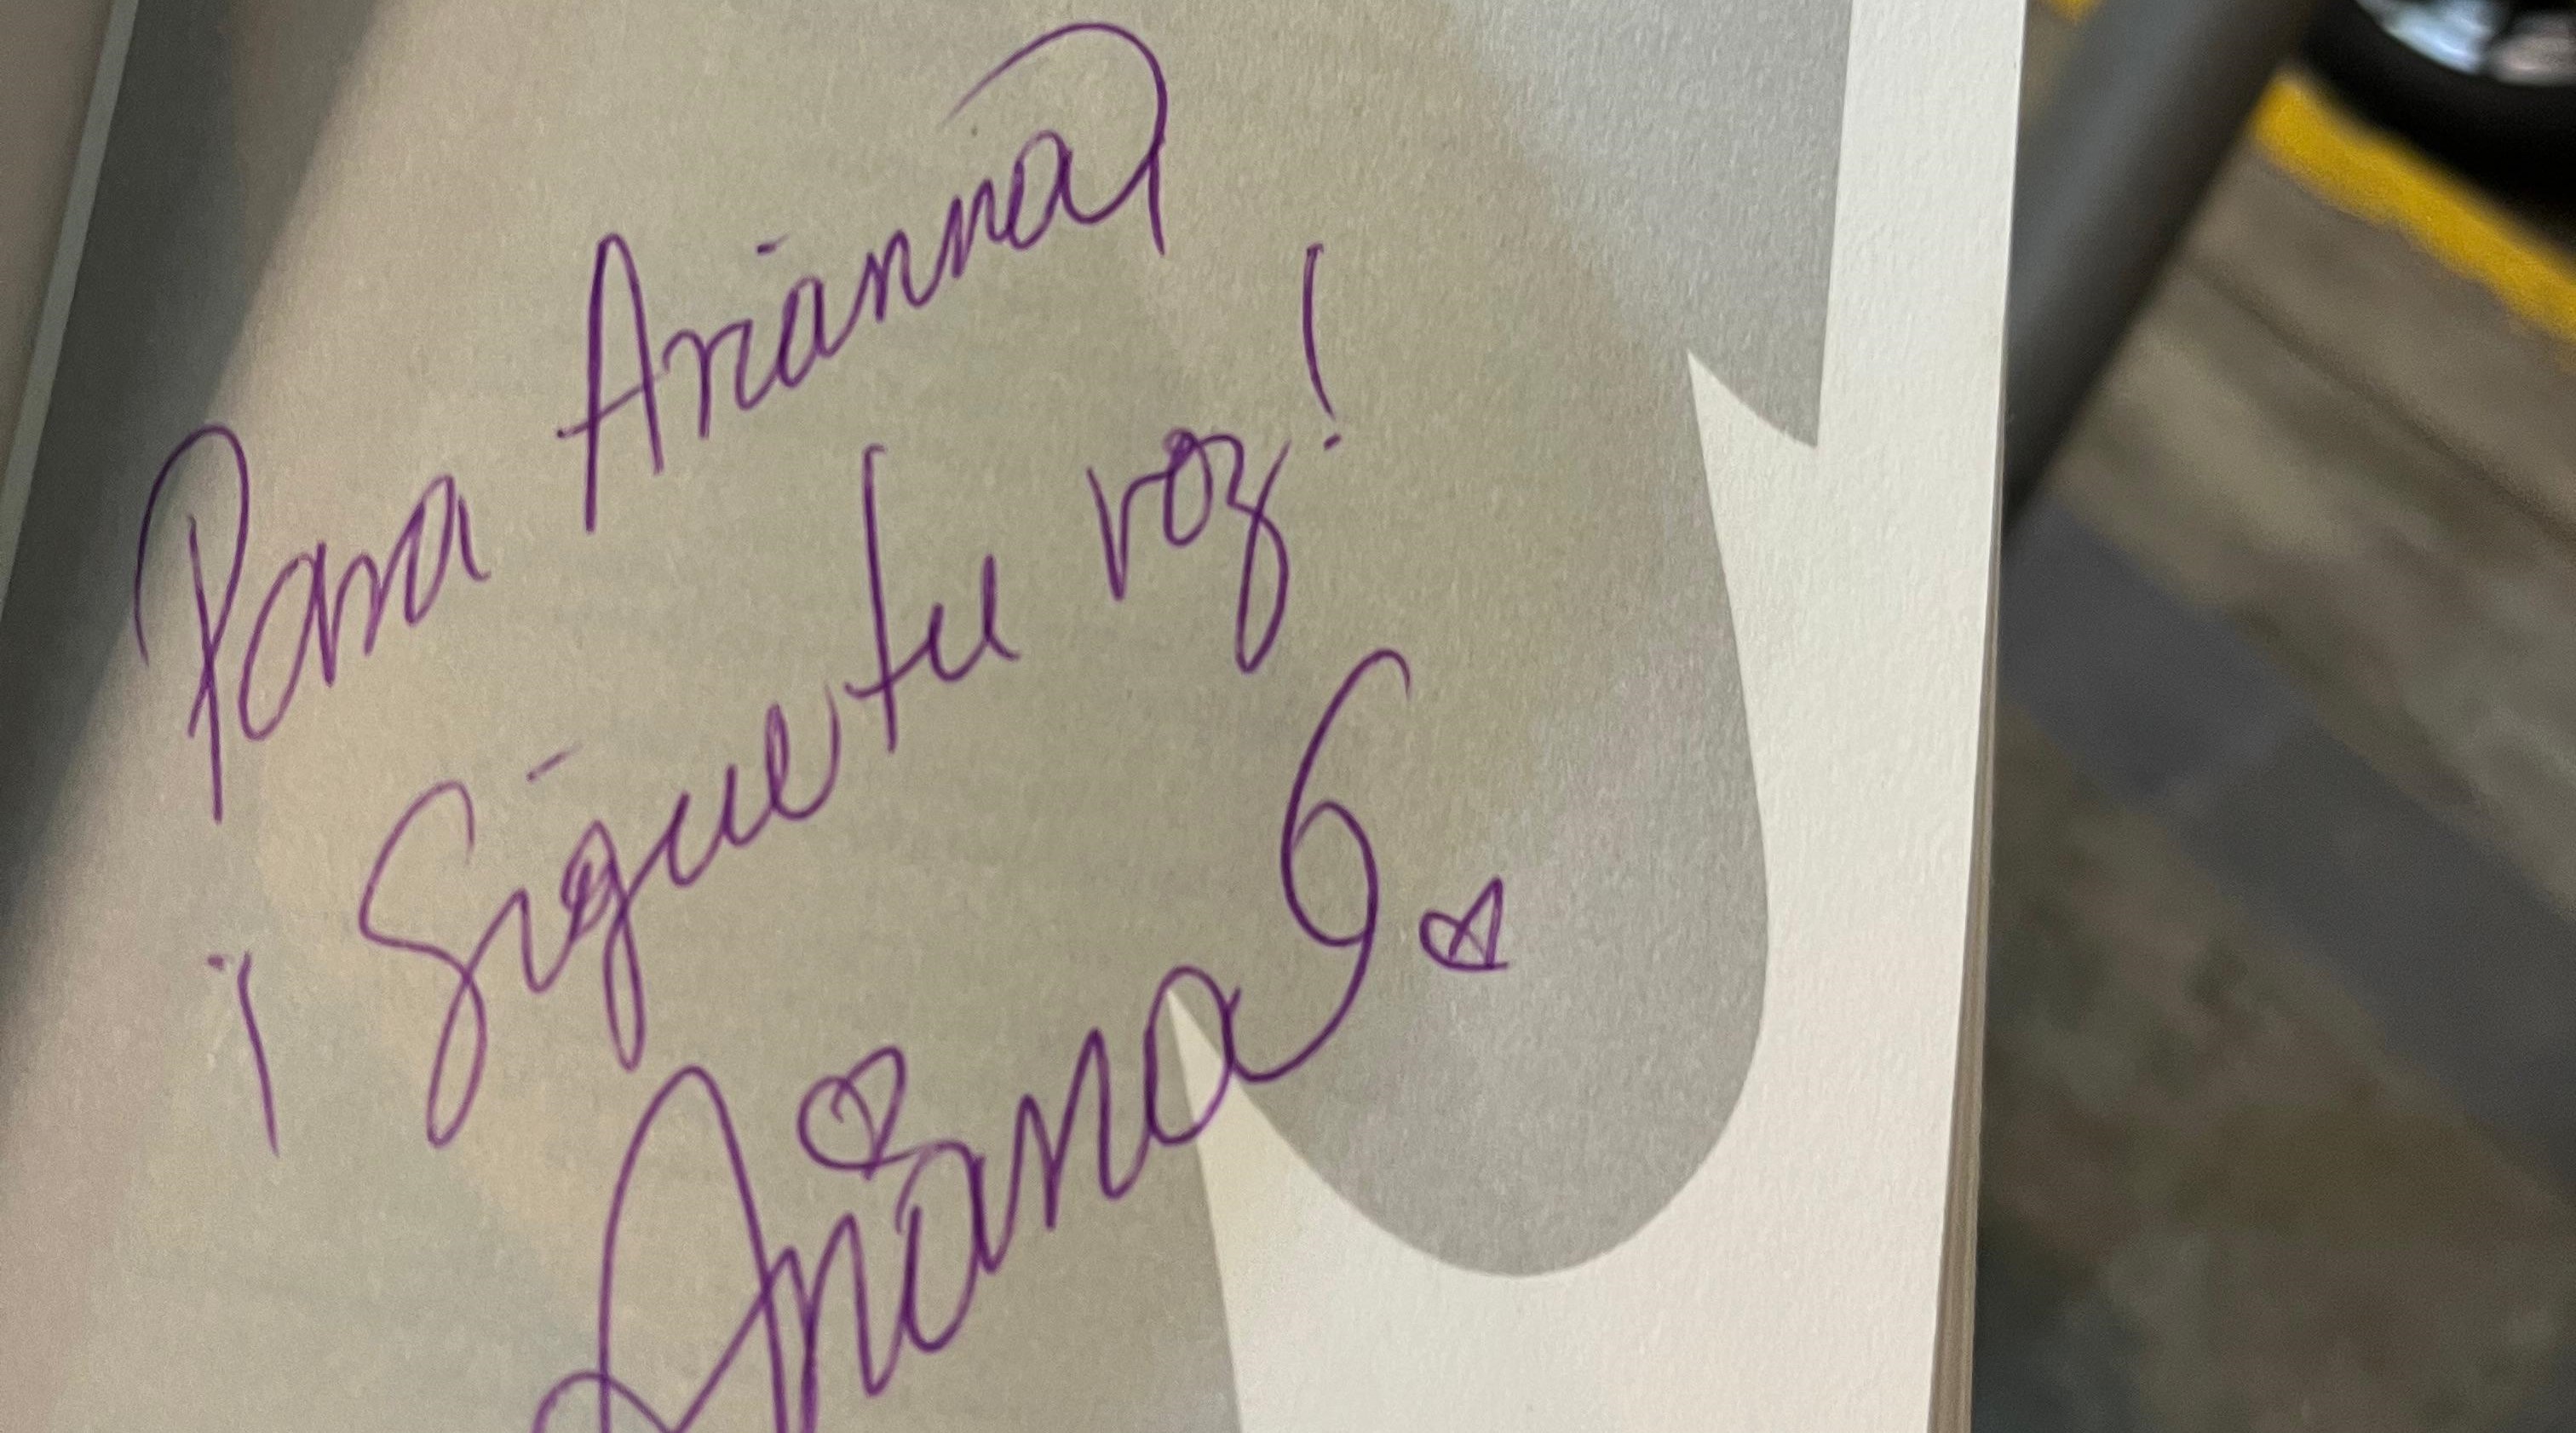 Para Arianna
¡Sigue tu voz!
Ariana G.